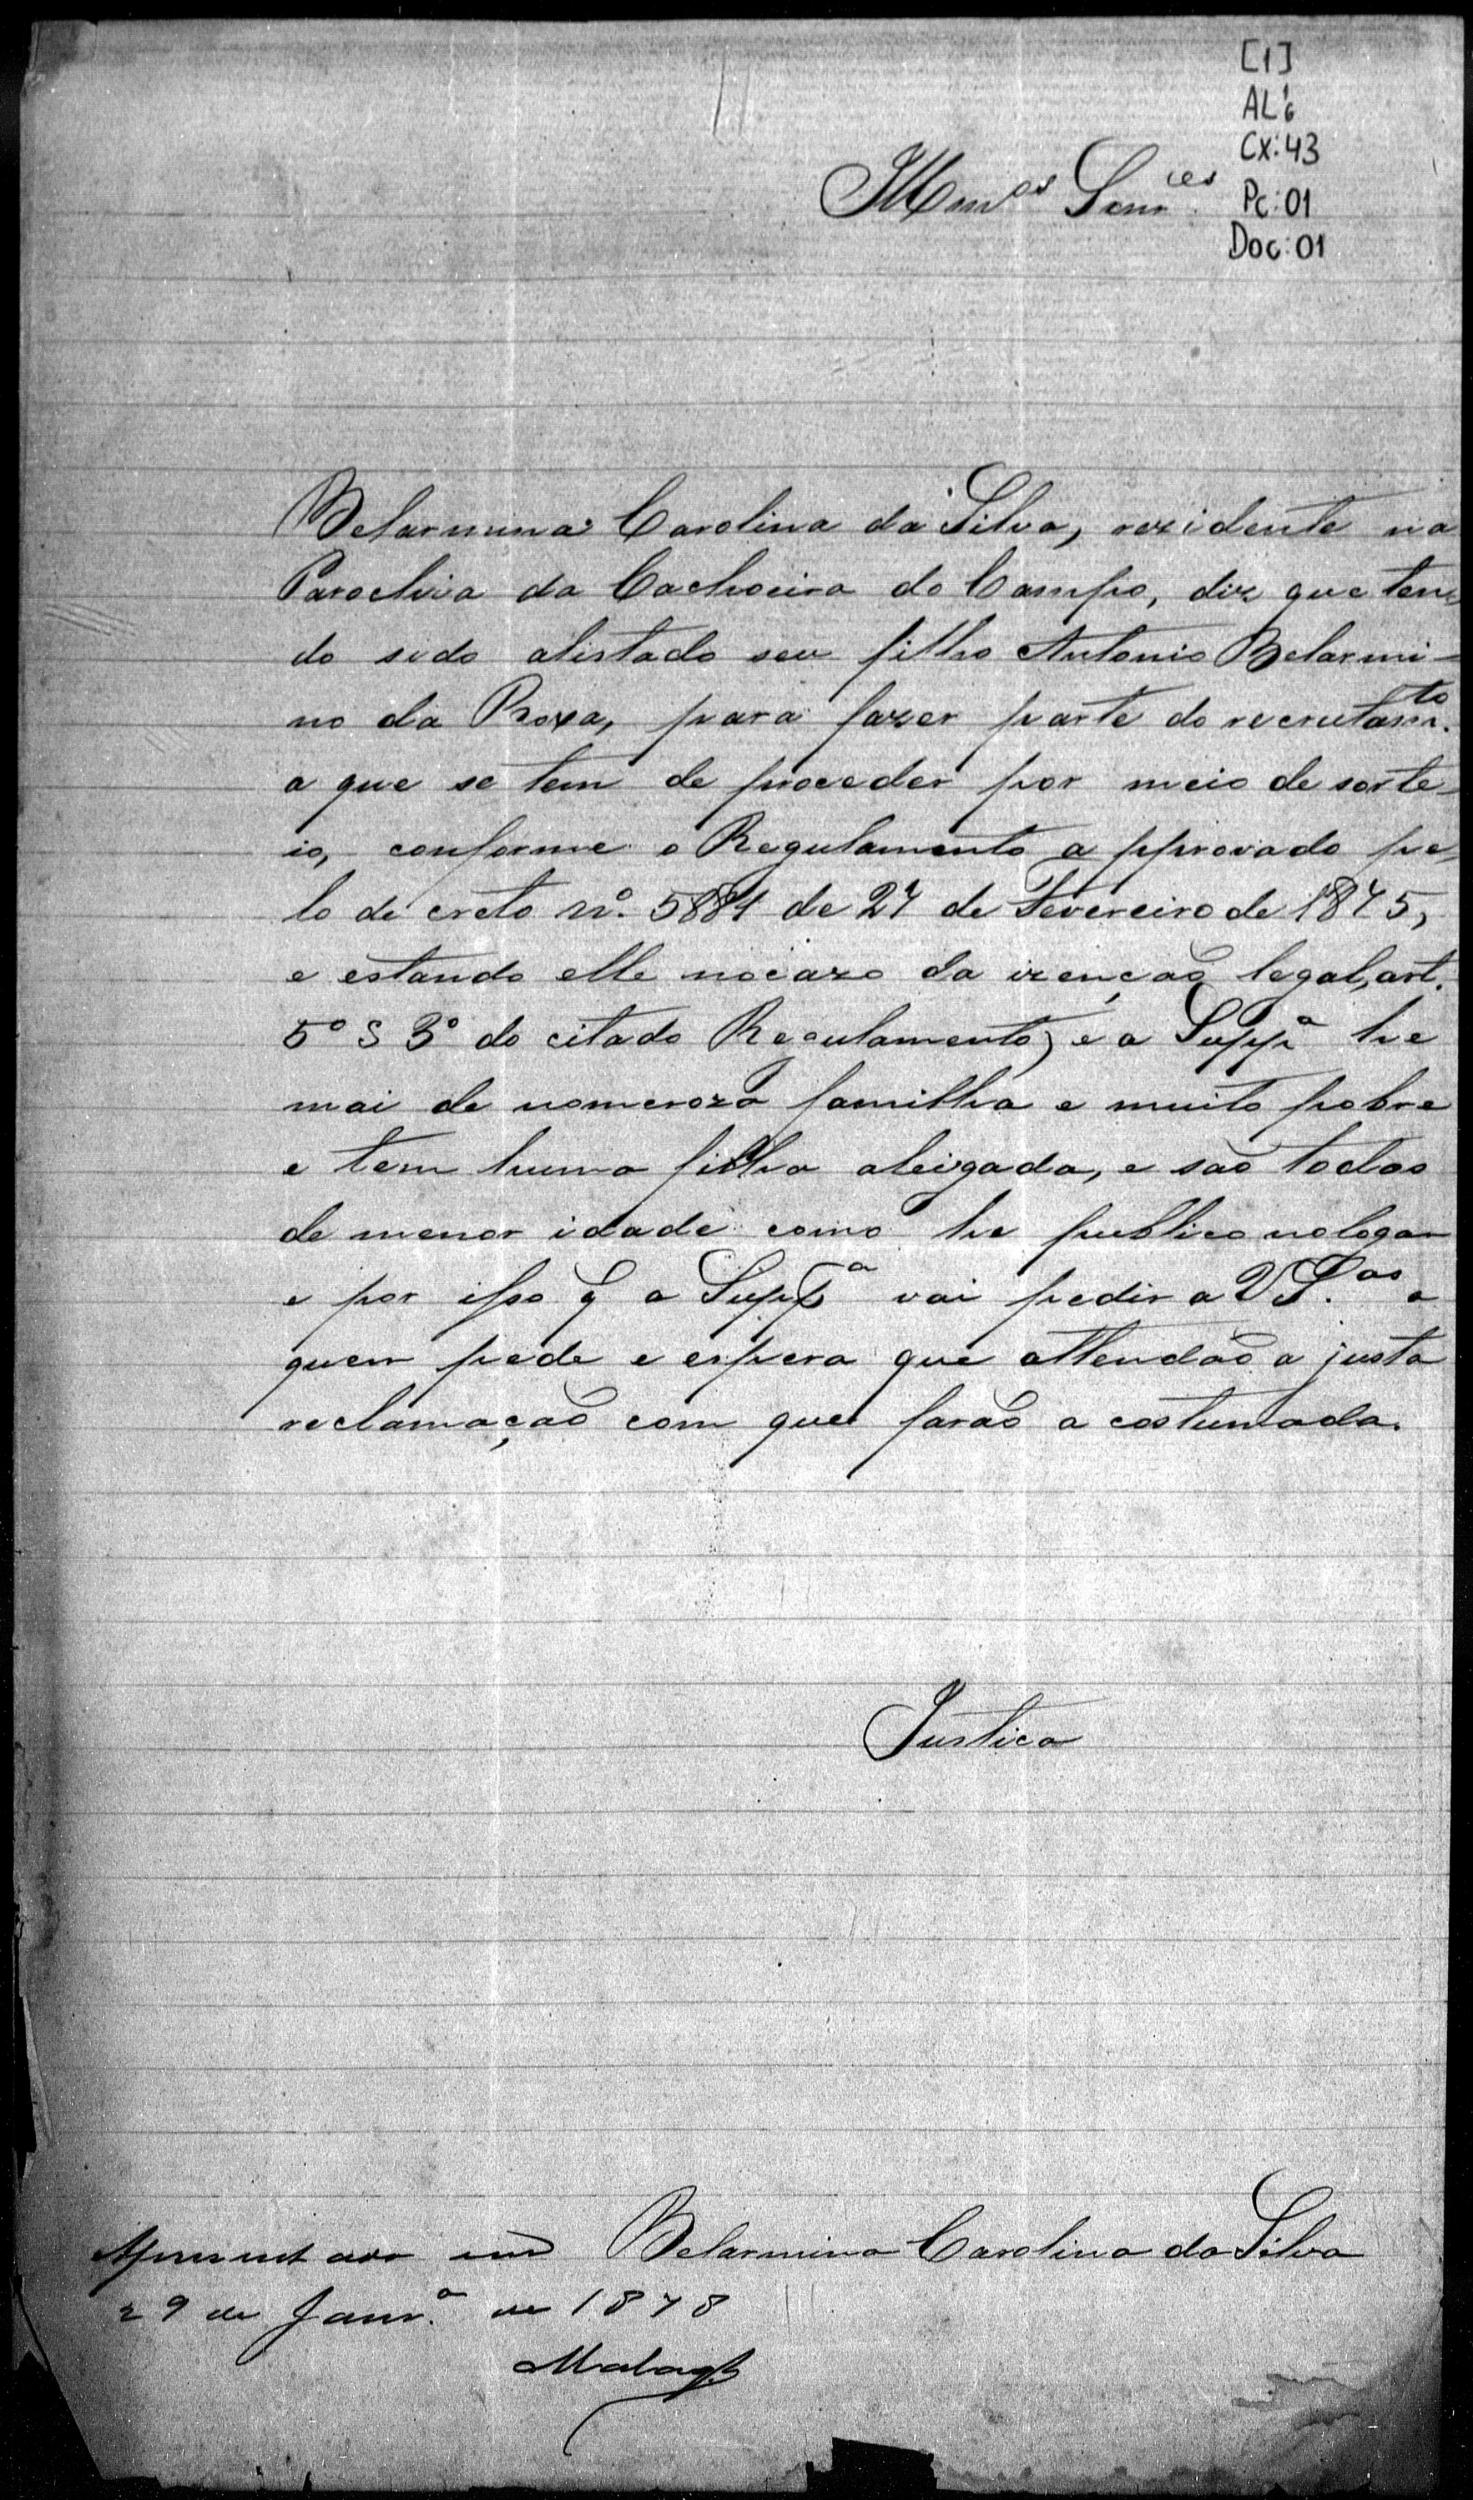 [1]
AL 6
Cx: 43
Pc: 01
Doc: 01
Illmos Senres
Belarmina Carolina da Silva, rezidente na
Parochia da Cachoeira do Campo, diz que ten-
do sido alistado seu filho Antonio Belarmi-
no da Roxa, para fazer parte do recrutamto.
a que se tem de proceder por meio de sorte-
io, conforme o Regulamento a pprovado pe-
lo de creto no. 5881 de 27 de Fevereiro de 1875,
e estando elle no cazo da izenção legal, art.
5º § 3º do citado Regulamento, e a Suppa he
mai de nomeroza familha e muito pobre
e tem huma filha aleigada, e são todos
de menor idade como he publico no logar
e por ifso q a Suppa vai pedir a VSas a
quem pede e espera que attendão a justa
reclamação com que farão a costumada.
Justica
Belarmina Carolina da Silva
Apresentado em
29 de Janro. de 1878